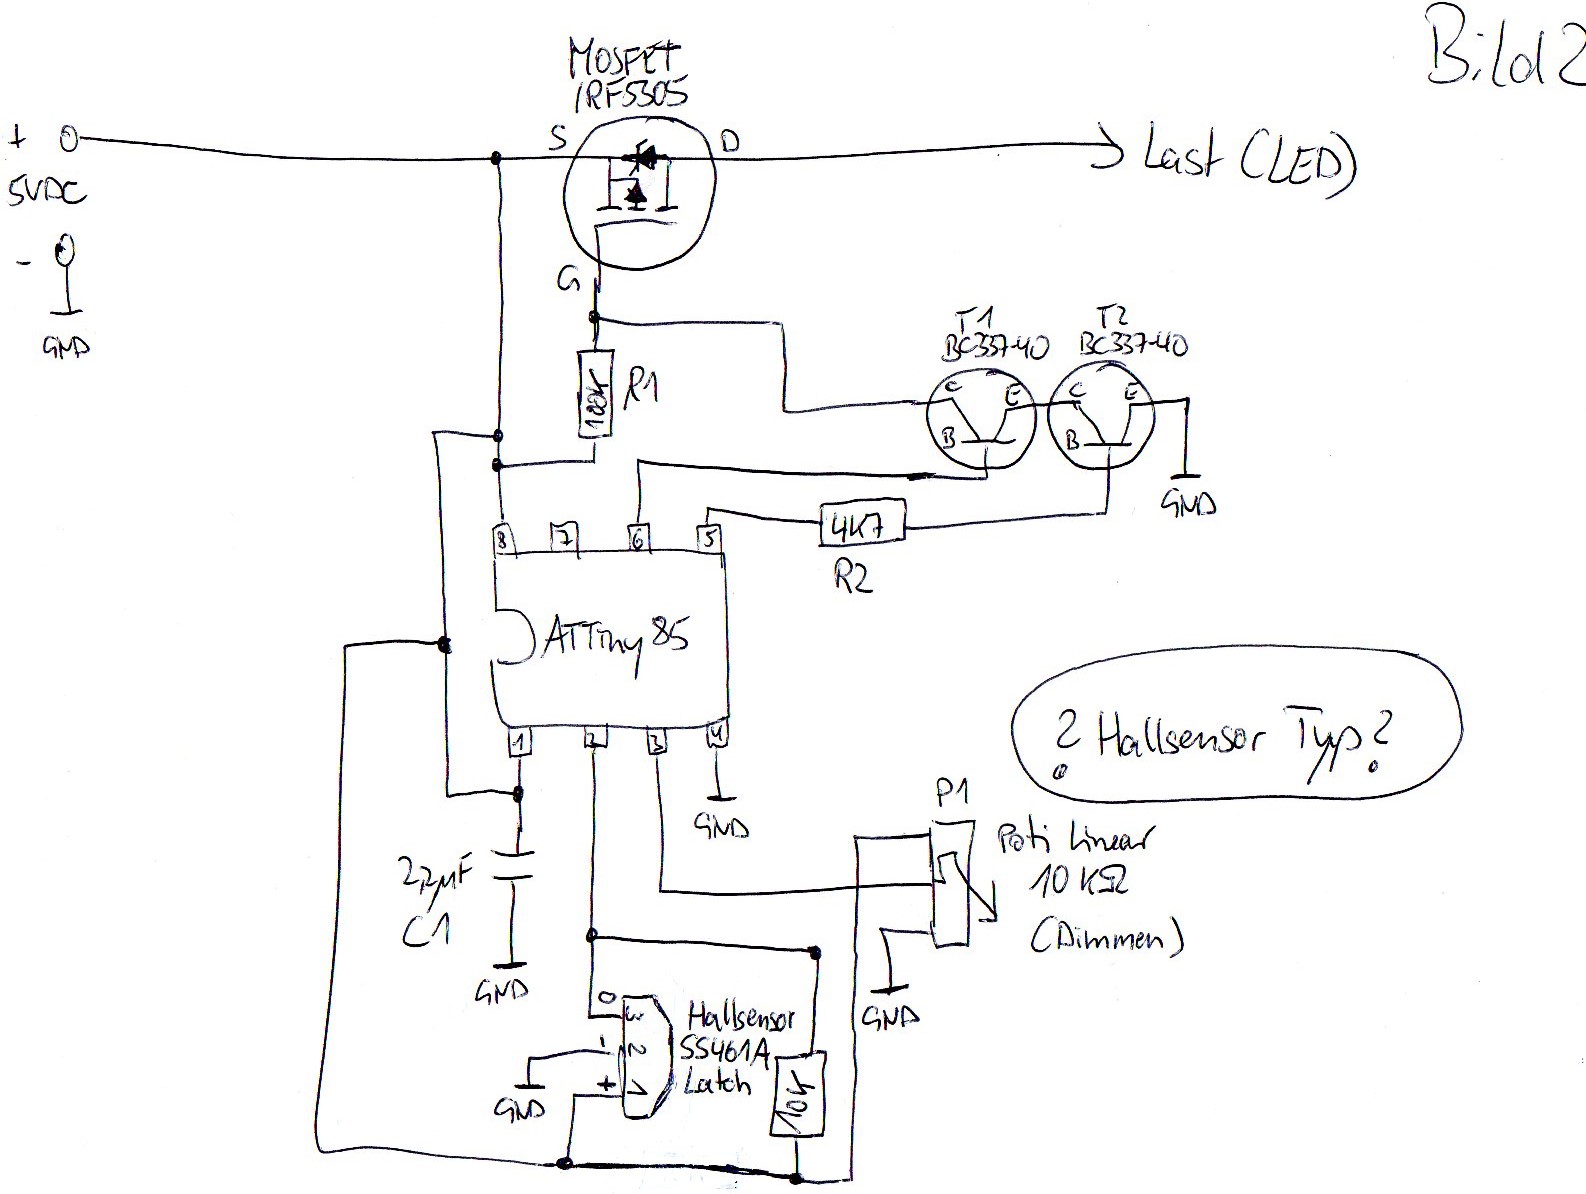 Bild2
MOSFET
IRF5305
+
S
D
Last (LED)
5VDC
-
GND
G
T1
BC337-40
T2
BC337-40
100k
R1
C
E
B
C
E
B
GND
4K7
R2
8
7
6
5
ATTiny85
1
2
3
4
GND
? Hallsensor Typ?
P1
Poti Linear
10 KΩ
(Dimmen)
2,2µF
C1
GND
GND
0
3
-
2
+
1
Hallsensor
SS461A
Latch
GND
10k